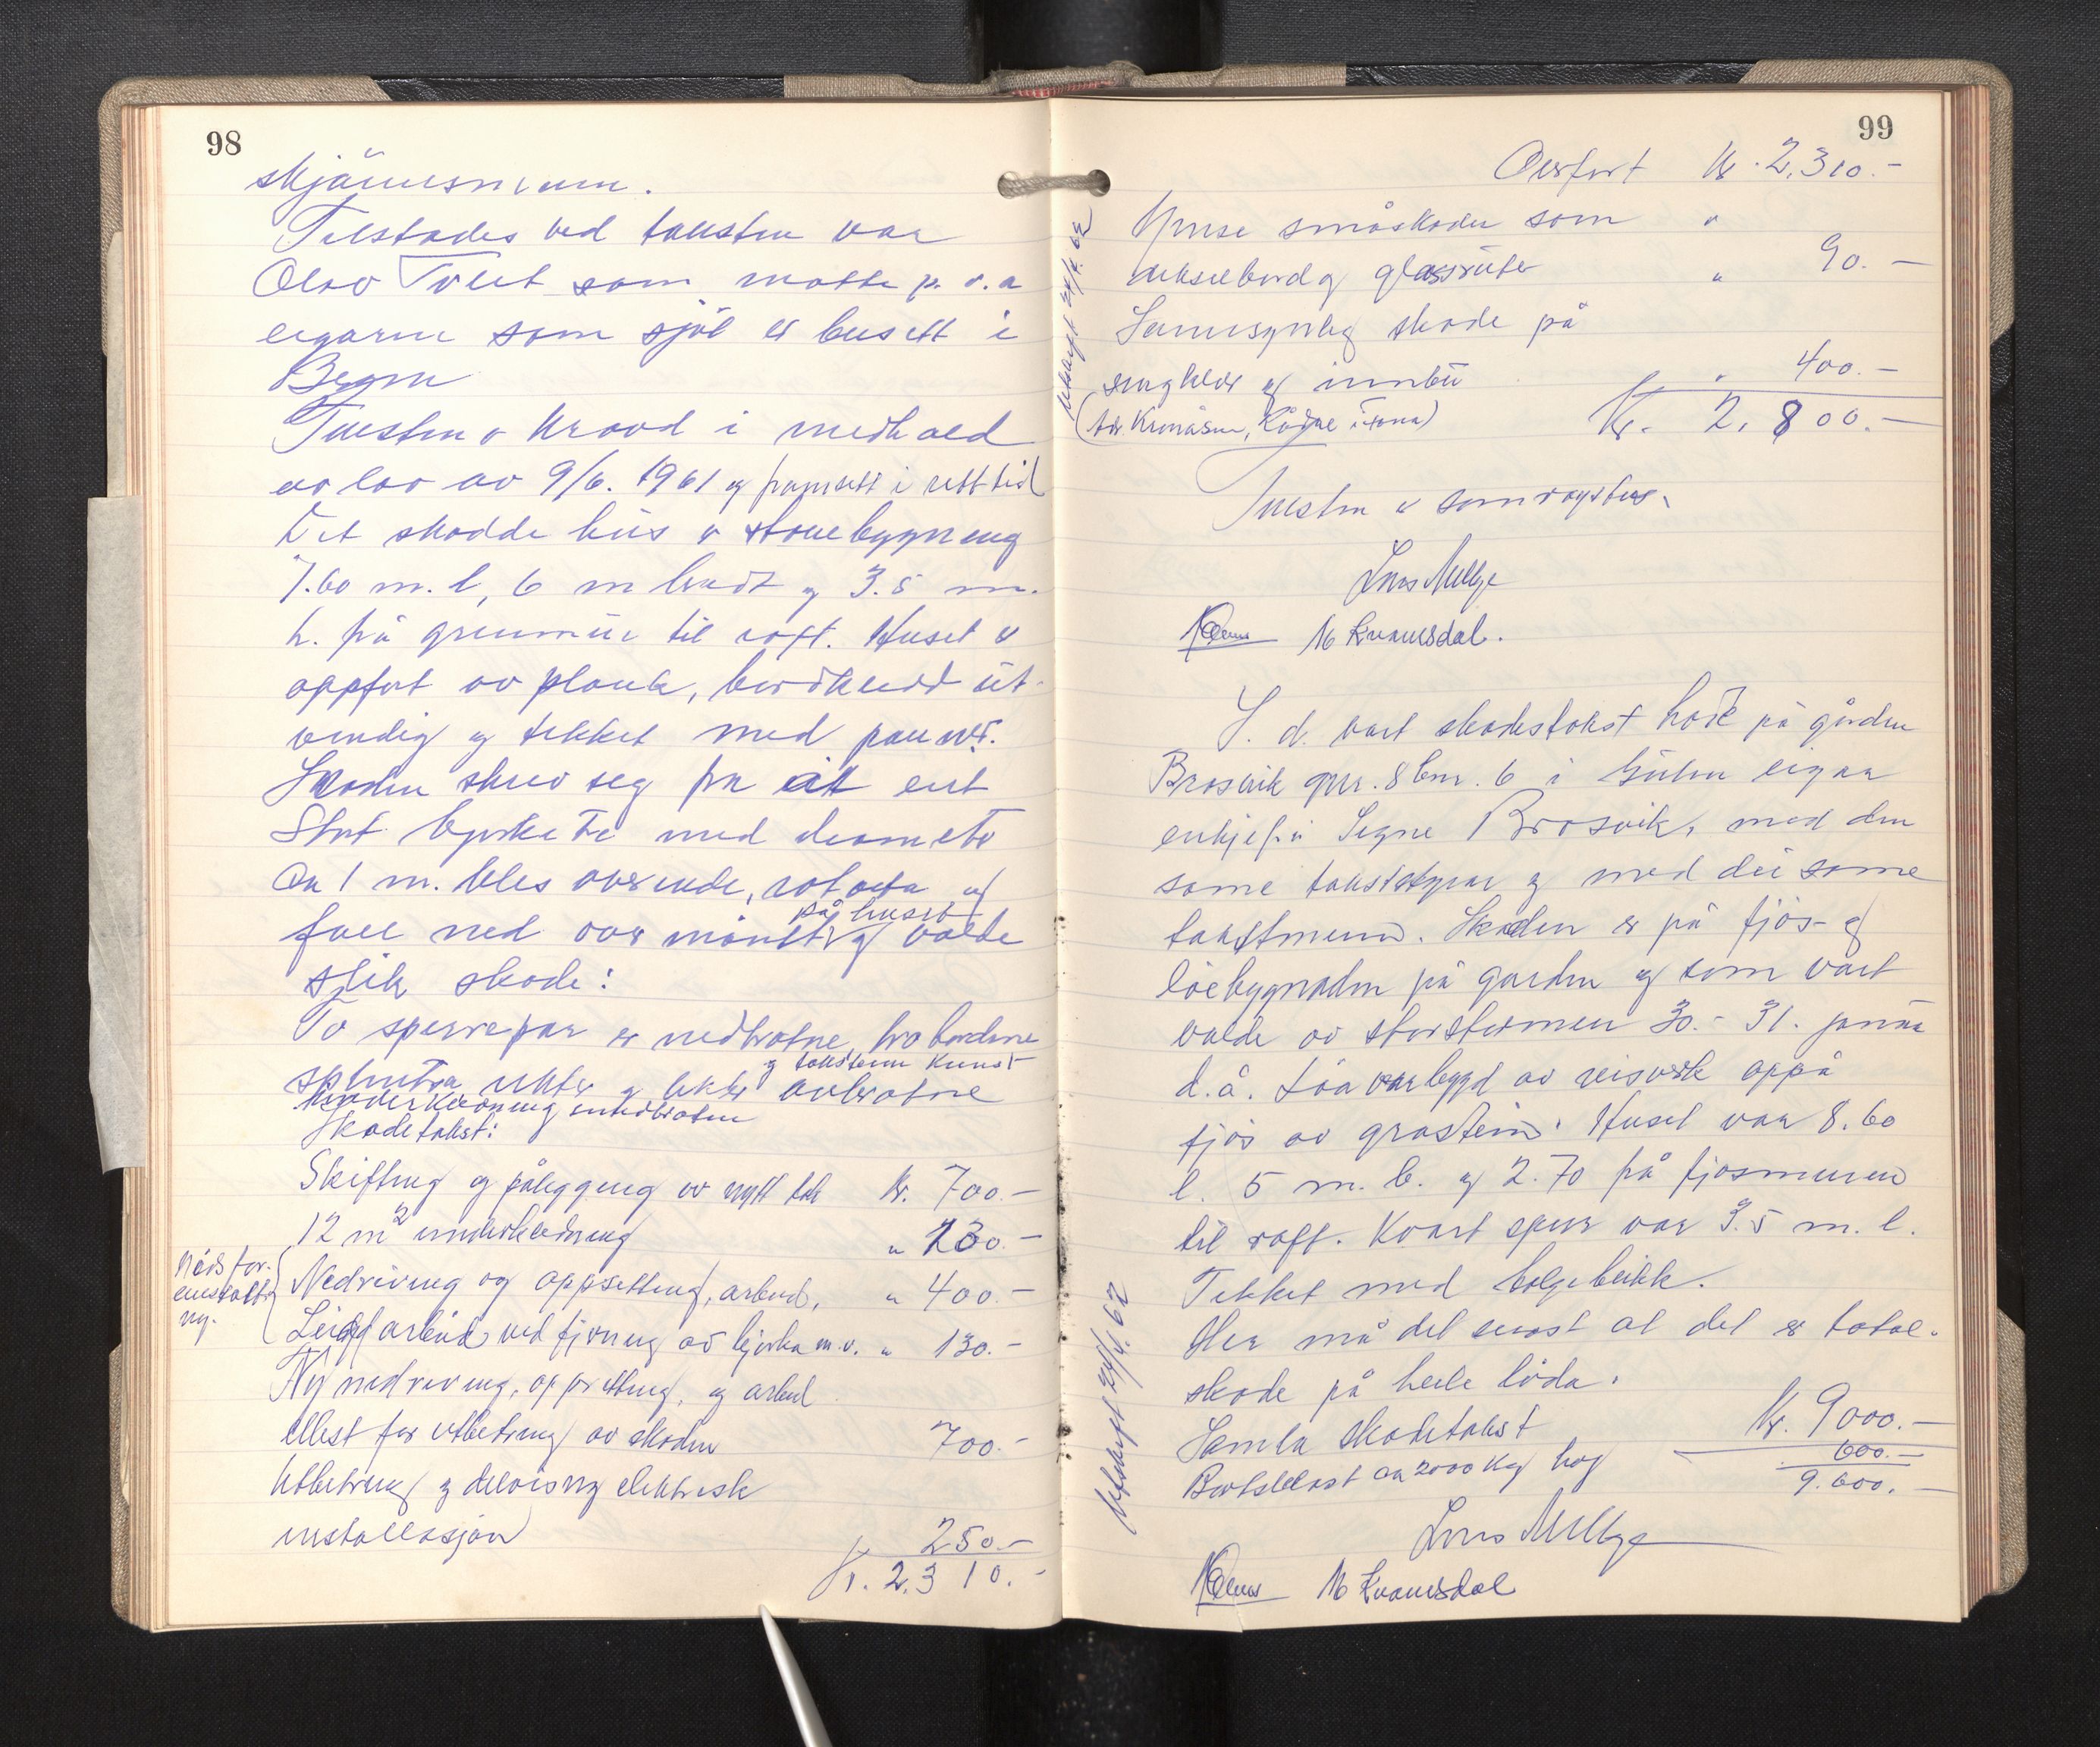 98
skjønsmenn.
Tilstades ved taksten var
Olav Tveit som møtte p. v. a
eigaren som sjøl er busett i
Bergen
Taksten er krevd i medhald
av lov av 9/6. 1961 og framsett i rett tid
Det skadde hus er stovebygning
7.60 m. l, 6 m breidt og 3.5 m.
h. frå grunnmur til raft. Huset er
oppført av plank, bordkledd ut-
vendig og tekket med panner.
Skaden skrev seg fra at eit
stort bjørketre med diameter
ca 1 m. bles overende, og
fall ned over mønet på huset og valde
slik skade:
To sperrepar er nedbrotne, trobordene
splintra, rekter og lekter og takstein knust avbrotne
Underkledning innebroten
Skadetakst:
Skifting og pålegging av nytt tak kr. 700.-
12 m2 underkledning " 130.-
Naudsfor-
anstalt-
ng.
Nedriving og oppsetting, arbeid, " 400.-
Leigd arbeid ved fjerning av bjørka m.v. " 130.-
Ny nedriving, oppretting, og arbeid
ellest for utbetring av skaden 700.-
Utbetring og delvis ny elektrisk
installasjon 250.-
Kr. 2.310.-
99
Overført kr. 2.310.-
Ymse småskader som "
vekselbord og glassruter " 90.-
Sannsynleg skade på
sengklær og innbu " 400.-
Kr. 2.800.-
Utskrift 24/4. 62
Taksten er samrøystes.
Lars Mellge
M Kvamsdal.
S. d. vart skadetakst hatt på gården
Brosvik gnr. 8 bnr. 6 i Gulen eigar
enkjefru Signe Brosvik, med den
same takststyrar og med dei same
takstmenn. Skaden er på fjøs- og
løebygnaden på garden og som vart
valde av storstormen 30.- 31. januar
d.å. Løa var bygd av reisverk oppå
fjøs av gråstein. Huset var 8.60
l. 5 m. b. og 2.70 frå fjøsmuren
til raft. Kvart sperr var 3.5 m. l.
Tekket med bølgeblikk.
Her må det seiast at det er total-
skade på heile løda.
Samla skadetakst Kr. 9000.-
Bortblåst ca 2000 kg høy 600.-
9.600.-
Utskrift 24/4. 62
Lars Mellge
M Kvamsdal